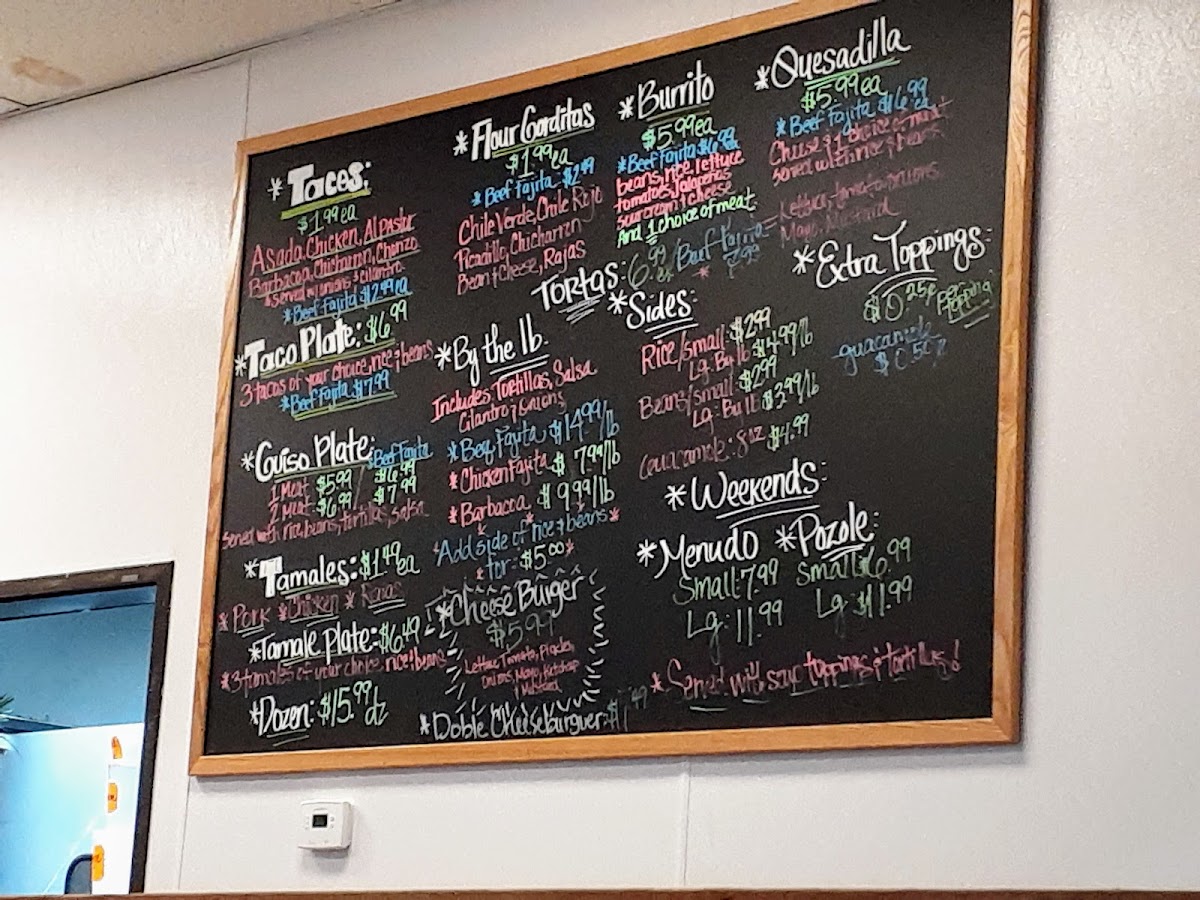 * Tacos:
$1.99 ea
Asada, Chicken, Al Pastor
Barbacoa, Chicharron, Chorizo
*served w/ onions & cilantro
*Beef Fajita $2.49 ea
*Taco Plate: $6.99
3 tacos of your choice, rice & beans
*Beef Fajita $7.99
*Guiso Plate: *Beef Fajita
1 Meat $5.99 / $6.99
2 Meat: $6.99 / $7.99
served with rice, beans, tortillas, salsa
*Tamales: $1.49 ea
* Pork * Chicken * Rajas
*Tamale Plate: $6.49
*3 tamales of your choice, rice & beans
*Dozen: $15.99 dz
*Flour Gorditas
$1.99 ea
*Beef Fajita $2.49
Chile Verde, Chile Rojo
Picadillo, Chicharron
Bean & Cheese, Rajas
*By the lb.
Includes, Tortillas, Salsa
Cilantro & Onions
*Beef Fajita $14.99/lb
*Chicken Fajita $7.99/lb
*Barbacoa $9.99/lb
*Add side of rice & beans*
*for $5.00*
*Cheese Burger
$5.99
Lettuce, Tomato, Pickles,
Onions, Mayo, Ketchup
& Mustard
*Doble Cheeseburguer:
*Burrito
$5.99 ea
*Beef Fajita $6.99 ea
beans, rice, lettuce
tomatoes, Jalapeños
sour cream & cheese
And 1 choice of meat.
Tortas: 6.99 ea / Beef Fajita 7.99
*Sides:
Rice/small: $2.99
Lg: By lb $4.99/lb
Beans/small: $2.99
Lg: By lb $3.99/lb
Guacamole: 8oz $4.99
*Quesadilla
$5.99 ea
*Beef Fajita $6.99 ea
Cheese & 1 choice of meat
served with rice & beans.
Lettuce, tomato, onions,
Mayo, Mustard
*Extra Toppings:
$0.25¢ per topping
guacamole
$0.50¢
*Weekends:
*Menudo
Small: 7.99
Lg: 11.99
*Pozole:
Small: $6.99
Lg: $11.99
*Served with soup toppings & tortillas!